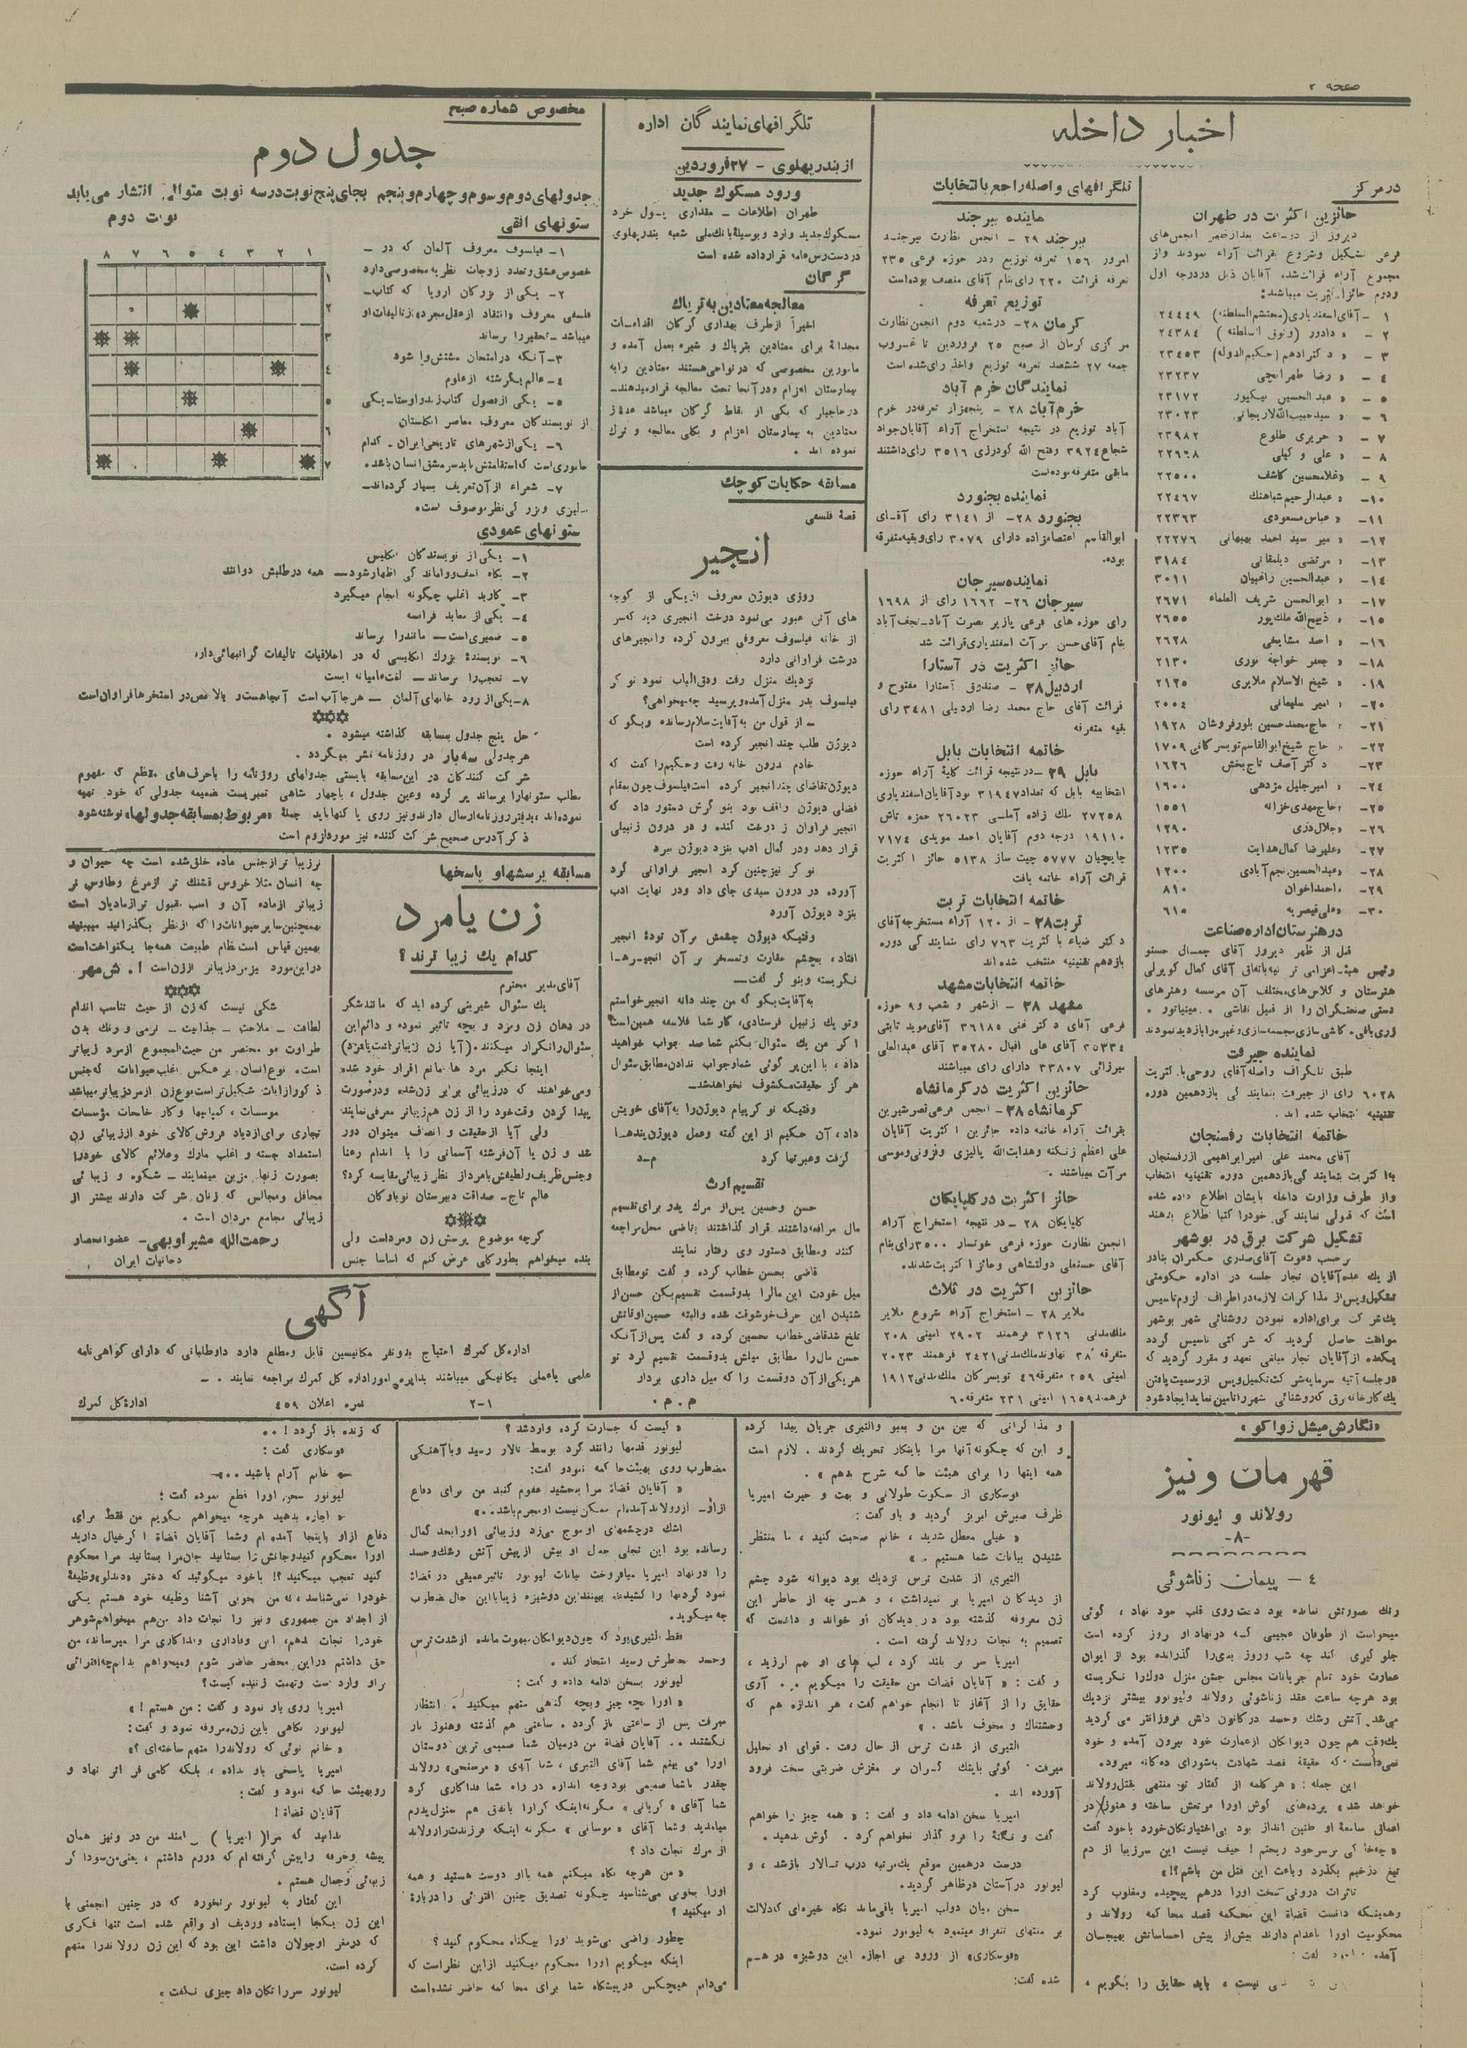 صفحه ۲
اخبار داخله
در مرکز
حائزین اکثریت در طهران
فرعی تشکیل و شروع قرائت آراء نمودند و از
مجموع آراء قرائت شده آقایان ذیل در درجه اول
و دوم حائز اکثریت میباشند:
۱ - آقای اسفندیاری (محتشم السلطنه) ۲۴۴۴۹
۲ - » دادور (وثوق السلطنه) ۲۴۳۸۴
۳ - » دکتر ادهم (حکیم الدوله) ۲۳۴۵۳
۴ - » رضا طهرانچی ۲۳۲۳۷
۵ - » عبدالحسین نیکپور ۲۳۱۷۲
۶ - » سید حبیب الله لاریجانی ۲۳۰۲۳
۷ - » حریری طلوع ۲۳۹۸۲
۸ - » علی وکیلی ۲۲۶۶۸
۹ - » غلامحسین کاشف ۲۲۵۰۰
۱۰ - » عبدالرحیم شباهنک ۲۲۴۶۷
۱۱ - » عباس مسعودی ۲۲۳۶۳
۱۲ - » میر سید احمد بهبهانی ۲۲۲۷۶
۱۳ - » مرتضی دیلمقانی ۳۱۸۴
۱۴ - » عبدالحسین راغبیان ۳۰۱۱
۱۷ - » ابوالحسن شریف العلماء ۲۶۷۱
۱۵ - » ذبیح الله ملک پور ۲۶۵۵
۱۶ - » احمد مشایخی ۲۶۲۸
۱۸ - » جعفر خواجه نوری ۲۱۳۰
۱۹ - » شیخ الاسلام ملایری ۲۱۲۵
۲۰ - » امیر سلیمانی ۲۰۰۴
۲۱ - » حاج محمدحسین بلورفروشان ۱۹۲۸
۲۲ - » حاج شیخ ابوالقاسم تویسرکانی ۱۷۰۹
۲۳ - » دکتر آصف تاج بخش ۱۶۲۶
۲۴ - » امیر جلیل مژدهی ۱۶۰۰
۲۵ - » حاج مهدی خزانه ۱۵۵۱
۲۶ - » جلال دری ۱۲۹۰
۲۷ - » علیرضا کمال هدایت ۱۲۳۵
۲۸ - » عبدالحسین نجم آبادی ۱۲۰۰
۲۹ - » احمد اخوان ۸۱۰
۳۰ - » علی قیصریه ۶۱۵
در هنرستان اداره صناعت
قبل از ظهر دیروز آقای جمال حسنو
هنرستان و کلاس های مختلف آن موسسه و هنرهای
دستی صنعتگران را از قبیل نقاشی . مینیاتور .
زری بافی. کاشی سازی. مجسمه سازی و غیره را بازدید نمودند
نماینده جیرفت
طبق تلگراف واصله آقای روحی با کثریت
۶۰۲۸ رای از جیرفت بنمایندگی یازدهمین دوره
تقنینیه انتخاب شده اند .
خاتمه انتخابات رفسنجان
آقای محمد علی امیر ابراهیمی از رفسنجان
به اکثریت بنمایندگی یازدهمین دوره تقنینیه انتخاب
و از طرف وزارت داخله بایشان اطلاع داده شده
است که قبولی نمایندگی خود را کتبا اطلاع بدهند
تشکیل شرکت برق در بوشهر
بر حسب دعوت آقای صدری حکمران بنادر
از یک عده آقایان تجار جلسه در اداره حکومتی
تشکیل و پس از مذاکرات لازمه در اطراف لزوم تاسیس
یک شرکت برای اداره نمودن روشنائی شهر بوشهر
موافقت حاصل گردید که شرکتی تاسیس گردد
یک کارخانه برق که روشنائی شهر را تامین نماید ایجاد شود
تلگرافهای واصله راجع بانتخابات
نماینده بیرجند
بیرجند ۲۹ - انجمن نظارت بیرجند
امروز ۱۵۶ تعرفه توزیع و در حوزه فرعی ۲۳۵
تعرفه قرائت ۲۲۰ رای بنام آقای منصف بوده است
توزیع تعرفه
کرمان ۲۸- درشعبه دوم انجمن نظارت
مرکزی کرمان از صبح ۲۵ فروردین تا غروب
جمعه ۲۷ ششصد تعرفه توزیع واخذ رای شده است
نمایندگان خرم آباد
خرم آباد ۲۸ - پنجهزار تعرفه در خرم
آباد توزیع در نتیجه استخراج آراء آقایان جواد
شجاع ۳۹۲۴ و فتح الله گودرزی ۳۵۱۶ رای داشتند
مابقی متفرقه بوده است
نماینده بجنورد
بجنورد ۲۸- از ۳۱۴۱ رای آقای
ابوالقاسم اعتصام زاده دارای ۳۰۷۹ رای و بقیه متفرقه
بوده.
نماینده سیرجان
سیرجان ۲۶- ۱۶۶۲ رای از ۱۶۹۸
بنام آقای حسن مرآت اسفندیاری قرائت شد
حائز اکثریت در آستارا
اردبیل ۲۸ - صندوق آستارا مفتوح و
قرائت آقای حاج محمد رضا اردبیلی ۳۴۸۱ رای
بقیه متفرقه
خاتمه انتخابات بابل
بابل ۲۹ - در نتیجه قرائت کلیه آراء حوزه
انتخابیه بابل که تعداد ۳۱۹۴۷ بود آقایان اسفندیاری
۲۷۲۵۸ ملک زاده آملسی ۲۶۰۲۳ حمزه تاش
۱۹۱۱۰ درجه دوم آقایان احمد مویدی ۷۱۷۴
چایچیان ۵۷۷۷ چیت ساز ۵۱۳۸ حائز اکثریت
قرائت آراء خاتمه یافت
خاتمه انتخابات تربت
تربت ۲۸- از ۱۲۰ آراء مستخرجه آقای
دکتر ضیاء با کثریت ۷۶۳ رای نمایندگی دوره
یازدهم تقنینیه منتخب شده اند
خاتمه انتخابات مشهد
مشهد ۲۸ - از شهر و شعب و ۹ حوزه
فرعی آقای دکتر غنی ۳۶۱۸۵ آقای موید ثابتی
۳۵۳۳۴ آقای علی اقبال ۳۵۲۸۰ آقای عبدالعلی
میرزائی ۳۳۸۰۷ دارای رای میباشند
حائزین اکثریت در کرمانشاه
کرمانشاه ۲۸ - انجمن فرعی قصر شیرین
بقرائت آراء خاتمه داده حائزین اکثریت آقایان
علی اعظم زنگنه و هدایت الله پالیزی و قزونی و موسی
مرآت میباشند .
حائز اکثریت در گلپایگان
گلپایگان ۲۸ - در نتیجه استخراج آراء
انجمن نظارت حوزه فرعی خونسار ۳۵۰۰ رای بنام
آقای حسنعلی دولتشاهی و حائز اکثریت شدند.
حائزین اکثریت در ثلاث
ملایر ۲۸ - استخراج آراء شروع ملایر
ملک مدنی ۳۱۲۶ فرهمند ۲۹۰۲ امینی ۲۰۸
متفرقه ۳۸ نهاوند ملک مدنی ۲۴۲۱ فرهمند ۲۰۲۳
امینی ۲۵۹ متفرقه ۴۶ تویسرکان ملک مدنی ۱۹۱۲
فرهمند ۱۶۵۹ امینی ۲۳۱ متفرقه ۶۰
تلگرافهای نمایندگان اداره
از بندر پهلوی - ۲۷ فروردین
ورود مسکوک جدید
طهران اطلاعات - مقداری پول خرد
مسکوک جدید وارد و بوسیله بانک ملی شعبه بندر پهلوی
در دسترس عامه قرار داده شده است
گرگان
معالجه معتادین به تریاک
اخیراً از طرف بهداری گرگان اقدامات
مجدانه برای معتادین بتریاک و شیره بعمل آمده و
مامورین مخصوصی که در نواحی هستند معتادین را به
بیمارستان اعزام و در آنجا تحت معالجه قرار میدهند-
معتادین به بیمارستان اعزام و بکلی معالجه و ترک
نموده اند .
مسابقه حکایات کوچک
قصهٔ فلسفی
انجیر
روزی دیوژن معروف از یکی از کوچه
های آتن عبور می نمود درخت انجیری دید که سر
از خانه فیلسوف معروفی بیرون کرده و انجیرهای
درشت فراوانی دارد
نزدیک منزل رفت و دق الباب نمود نوکر
فیلسوف بدر منزل آمده و پرسید چه میخواهی؟
- از قول من به آقایت سلام رسانده و بگو که
دیوژن طلب چند انجیر کرده است
خادم درون خانه رفت و حکیم را گفت که
دیوژن تقاضای چند انجیر کرده است فیلسوف چون بمقام
فضلی دیوژن واقف بود بنوکرش دستور داد که
انجیر فراوان از درخت کنده و در درون زنبیلی
قرار دهد و در کمال ادب بنزد دیوژن برد
نوکر نیز چنین کرد انجیر فراوانی گرد
آورده در درون سبدی جای داد و در نهایت ادب
بنزد دیوژن آورد
وقتیکه دیوژن چشمش بر آن تودهٔ انجیر
افتاد، بچشم حقارت و تمسخر بر آن انجیرها
نگریسته و بنوکر گفت-
به آقایت بگو که من چند دانه انجیر خواستم
و تو یک زنبیل فرستادی، کار شما فلاسفه همین است
اگر من یک سئوال بکنم شما صد جواب خواهید
داد، با این پرگوئی شما و جواب ندادن مطابق سئوال
هرگز حقیقت مکشوف نخواهد شد-
وقتیکه نوکر پیام دیوژن را به آقای خویش
داد، آن حکیم از این گفته و عمل دیوژن پندها
گرفت و عبرتها کرد م-د
تقسیم ارث
حسن و حسین پس از مرگ پدر برای تقسیم
مال مرافعه داشتند قرار گذاشتند بقاضی محل مراجعه
کنند و مطابق دستور وی رفتار نمایند
قاضی بحسن خطاب کرده و گفت تو مطابق
میل خودت این مال را بدو قسمت تقسیم بکن حسن از
شنیدن این حرف خوشوقت شده و البته حسین اوقاتش
تلخ شد قاضی خطاب بحسین کرده و گفت پس از آنکه
حسن مال را مطابق میلش بدو قسمت تقسیم کرد تو
هر یکی از آن دو قسمت را که میل داری بردار
م . م .
مخصوص شماره صبح
جدول دوم
جدولهای دوم و سوم و چهارم و پنجم بجای پنج نوبت در سه نوبت متوالی انتشار می یابد
نوبت دوم
ستونهای افقی
۱ ۲ ۳ ۴ ۵ ۶ ۷ ۸
۱
۲
۳
۴
۵
۶
۷
۱- فیلسوف معروف آلمان که در -
خصوص عشق و تعدد زوجات نظریه مخصوصی دارد
۲- یکی از بزرگان اروپا که کتاب-
فلسفی معروف «انتقاد از عقل مجرد» از تالیفات او
میباشد - تحقیر را برساند
۳- آنکه در امتحان مشتش وا شود
۴- عالم برگشته از علوم
۵- یکی از فصول کتاب زند و اوستا - یکی
از نویسندگان معروف معاصر انگلستان
۶- یکی از شهرهای تاریخی ایران - کدام
جانوری است که استقامتش باید سرمشق انسان باشد.
۷- شعراء از آن تعریف بسیار کرده اند-
ستونهای عمودی
۱- یکی از نویسندگان انگلیس
۳- کارید اغلب چگونه انجام میگیرد
۴- یکی از معابد فرانسه
۵- ضمیری است - مانند را برساند
۶- نویسندهٔ بزرگ انگلیسی که در اخلاقیات تالیفات گرانبهائی دارد
۷- تعجب را برساند - لغت عامیانه ایست
حل پنج جدول بمسابقه گذاشته میشود .
هر جدولی سه بار در روزنامه نشر میگردد .
شرکت کنندگان در این مسابقه بایستی جدولهای روزنامه را با حرف های منظم که مفهوم
مطلب ستونها را برساند پر کرده و عین جدول ، با چهار شاهی تمبر پست ضمیمه جدولی که خود تهیه
نموده اند، بدفتر روزنامه ارسال دارند و نیز روی پاکتها باید جملهٔ «مربوط بمسابقه جدولها» نوشته شود
ذکر آدرس صحیح شرکت کننده نیز مورد لزوم است
مسابقه پرسشها و پاسخها
زن یا مرد
کدام یک زیبا ترند ؟
آقای مدیر محترم
یک سئوال شیرینی کرده اید که مانند شکر
در دهان زن و مرد و بچه تاثیر نموده و دائم این
سئوال را تکرار میکنند. (آیا زن زیباتر است یا مرد)
اینجا تکبر مرد ها مانع اقرار خود شده
و می خواهند که در زیبائی برابر زن شده و در صورت
پیدا کردن وقت خود را از زن هم زیباتر معرفی نمایند
ولی آیا از حقیقت و انصاف میتوان دور
شد و زن یا آن فرشته آسمانی را با اندام رعنا
و جنس ظریف و لطیفش با مرد از نظر زیبائی مقایسه کرد؟
عالم تاج - صداقت دبیرستان نوباوگان
گرچه موضوع پرسش زن و مرد است ولی
بنده میخواهم بطور کلی عرض کنم که اساسا جنس
نر زیبا تر از جنس ماده خلق شده است چه حیوان و
چه انسان مثلا خروس قشنک تر از مرغ و طاوس نر
زیباتر از ماده آن و اسب مقبول تر از مادیان است
همچنین سایر حیوانات را که از نظر بگذرانید میبینید
بهمین قیاس است نظام طبیعت همه جا یکنواخت است
در این مورد نیز مرد زیباتر از زن است ا. ش مهر
شکی نیست که زن از حیث تناسب اندام
لطافت - ملاحت - جذابیت - نرمی و رنک بدن
طراوت مو مختصر من حیث المجموع از مرد زیباتر
است. نوع انسان بر عکس اغلب حیوانات که جنس
ذکور از اناث شکیل تر است نوع زن از مرد زیباتر میباشد
موسسات ، کمپانیها و کارخانجات مؤسسات
تجاری برای ازدیاد فروش کالای خود از زیبائی زن
استمداد جسته و اغلب مارک و علائم کالای خود را
بصورت زنها مزین مینمایند - شکوه و زیبائی
محافل و مجالس که زنان شرکت دارند بیشتر از
زیبائی مجامع مردان است .
رحمت الله مشیر اوبهی - عضو انحصار
دخانیات ایران
آگهی
اداره کل گمرک احتیاج بدو نفر مکانیسین قابل و مطلع دارد داوطلبانی که دارای گواهی نامه
علمی یا عملی مکانیکی میباشند بدایره امور اداره کل گمرک مراجعه نمایند . -
۲-۱ نمره اعلان ۴۵۹ اداره کل گمرک
«نگارش میشل زواکو»
قهرمان ونیز
رولاند و لیونور
-۸-
۴ - پیمان زناشوئی
رنک صورتش نمانده بود دست روی قلب خود نهاد ، گوئی
میخواست از طوفان عجیبی که در نهاد او روز کرده است
جلوگیری کند چه شب و روز بدی را گذرانده بود از ایوان
عمارت خود تمام جریانات مجلس جشن منزل دوک را نگریسته
بود هرچه ساعت عقد زناشوئی رولاند و لیونور بیشتر نزدیک
می شد. آتش رشک و حسد در کانون دلش فروزانتر می گردید
یک وقت هم چون دیوانگان از عمارت خود بیرون آمده و خود
نمی دانست، که حقیقة قصد شهادت به شورای ده گانه میرود.
این جمله : « هر کلمه از گفتار تو منتهی بقتل رولاند
خواهد شد » پرده های گوش او را مرتعش ساخته و هنوز در
اعماق سامعهٔ او طنین انداز بود بی اختیار تکان خورد با خود گفت
«چه خاکی بر سر خود ریختم ! حیف نیست این سر زیبا از دم
تیغ دژخیم بگذرد و باعث این قتل من باشم؟!»
تاثرات درونی سخت او را درهم پیچیده و مغلوب کرد
و همینکه دانست قضاة این محکمه قصد محاکمه رولاند و
محکومیت او را باعدام دارند بیش از پیش احساساتش بهیجان
نیست ، باید حقایق را بگویم ،
و مذاکراتی که بین من و بمبو و التیری جریان پیدا کرده
و این که چگونه آنها مرا باینکار تحریک کردند . لازم است
همه اینها را برای هیئت حاکمه شرح بدهم » .
فوسکاری از سکوت طولانی و بهت و حیرت امپریا
ظرف صبرش لبریز گردید و باو گفت :
« خیلی معطل شدید ، خانم صحبت کنید ، ما منتظر
شنیدن بیانات شما هستیم . »
التیری از شدت ترس نزدیک بود دیوانه شود چشم
از دیدگان امپریا بر نمیداشت ، و هر چه از خاطر این
زن معروفه گذشته بود در دیدگان او خواند و دانست که
تصمیم به نجات رولاند گرفته است .
امپریا سر بر بلند کرد ، لب های او بهم لرزید ،
و گفت : « آقایان قضات من حقیقت را میگویم . . آری
حقایق را از آغاز تا انجام خواهم گفت ، هر اندازه هم که
وحشتناک و مخوف باشد . »
التیری از شدت ترس از حال رفت . قوای او تحلیل
میرفت گوئی بایتک گران بر مغزش ضربتی سخت فرود
آورده اند .
امپریا سخن ادامه داد و گفت : « همه چیز را خواهم
گفت و نکتهٔ را فرو گذار نخواهم کرد . گوش بدهید .
درست در همین موقع یک مرتبه درب تالار باز شد ، و
لیونور در آستان در ظاهر گردید.
سخن میان دو لب امپریا باقی ماند نگاه خیره ای که دلالت
بر منتهای تنفر او مینمود به لیونور نمود.
«فوسکاری» از ورود بی اجازه این دوشیزه در هم
شده گفت:
« کیست که جسارت کرده وارد شد ؟
لیونور قدمها را تند کرد بوسط تالار رسید و با آهنگی
مضطرب روی بهیئت حاکمه نمود و گفت:
« آقایان قضاة مرا ببخشید عفوم کنید من برای دفاع
اشک در چشمهای او موج می زد و زیبائی او را بحد کمال
رسانده بود این تجلی جمال او بیش از پیش آتش رشک و حسد
را در نهاد امپریا میافروخت بیانات لیونور تاثیر عمیقی در قضاة
نمود گردنها را کشیدند ببینند این دوشیزه زیبا با این حال مضطرب
چه میگوید.
فقط التیری بود که چون دیوانگان مبهوت مانده از شدت ترس
و حسد بخاطرش رسید انتحار کند .
لیونور بسخن ادامه داده و گفت :
« او را بچه چیز و بچه گناهی متهم میکنید ، انتظار
میرفت پس از ساعتی باز گردد . ساعتی هم گذشته و هنوز باز
نگشته . . آقایان قضاة من درمیان شما صمیمی ترین دوستان
او را می بینم شما آقای التیری ، شما آقای «مرستجی» رولاند
چقدر با شما صمیمی بود و چه اندازه در راه شما فداکاری کرد
میامدید و شما آقای «موسانی» مگر نه اینکه فرزندت را رولاند
از مرک نجات داد ؟
«من هرچه نگاه میکنم همه با او دوست هستید و همه
او را بخوبی می شناسید چگونه تصدیق چنین افترائی را درباره
او میکنید ؟
چطور راضی می شوید او را بیگناه محکوم کنید ؟
اینکه میگویم او را محکوم میکنید از این نظر است که
می دانم هیچکس در پیشگاه شما برای محاکمه حاضر نشده است
که زنده باز گردد ! . .
فوسکاری گفت :
«- خانم آرام باشید . . .»
لیونور سخن او را قطع نموده گفت ؛
« اجازه بدهید هرچه میخواهم بگویم من فقط برای
دفاع از او باینجا آمده ام و شما آقایان قضاة اگر خیال دارید
او را محکوم کنید و جانش را بستانید جان مرا بستانید مرا محکوم
کنید تعجب میکنید ؟! با خود میگوئید که دختر «دندلو» وظیفهٔ
خود را نمی شناسد، نه من بخوبی آشنا بوظیفه خود هستم یکی
از اجداد من جمهوری ونیز را نجات داد من هم میخواهم شوهر
خود را نجات بدهم، این وفاداری و فداکاری مرا میرساند، من
حق داشتم در این محضر حاضر شوم و میخواهم بدانم چه افترائی
براو وارد است و تهمت زننده کیست؟
امپریا روی باو نمود و گفت : من هستم !»
لیونور نگاهی باین زن معروفه نمود و گفت :
« خانم توئی که رولاند را متهم ساخته ای ؟»
امپریا پاسخی باو نداده ، بلکه گامی فراتر نهاد و
رو بهیئت حاکمه نمود و گفت :
آقایان قضاة !
پیشه و حرفه را پیش گرفته ام که مادرم داشتم ، یعنی من سوداگر
زیبائی و جمال هستم .
این گفتار به لیونور برنخورد که در چنین انجمنی با
این زن یکجا ایستاده و ردیف او واقع شده است تنها فکری
که در مغز او جولان داشت این بود که این زن رولاند را متهم
کرده است.
لیونور سر را تکان داد چیزی نگفت :